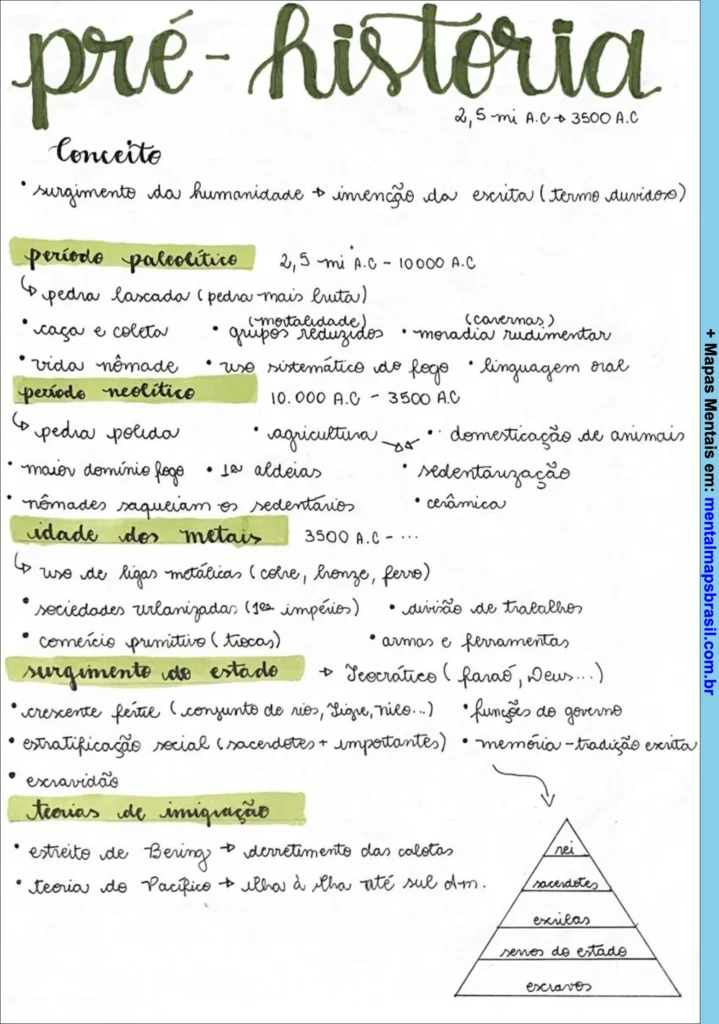 pré-história
2,5 mi A.C → 3500 A.C
Conceito
• surgimento da humanidade → invenção da escrita (termo duvidoso)
período paleolítico 2,5 mi A.C - 10000 A.C
↳ pedra lascada (pedra mais bruta)
(mortalidade) (cavernas)
• caça e coleta • grupos reduzidos • moradia rudimentar
• vida nômade • uso sistemático do fogo • linguagem oral
período neolítico 10.000 A.C - 3500 A.C
↳ pedra polida • agricultura • domesticação de animais
• maior domínio fogo • 1ª aldeias • sedentarização
• nômades saqueiam os sedentários • cerâmica
idade dos metais 3500 A.C - ...
↳ uso de ligas metálicas (cobre, bronze, ferro)
• sociedades urbanizadas (1ºs impérios) • divisão de trabalhos
• comércio primitivo (trocas) • armas e ferramentas
surgimento do estado → Teocrático (faraó, Deus...)
• crescente fértil (conjunto de rios, Tigre, nilo...) • funções do governo
• estratificação social (sacerdotes + importantes) • memória - tradição escrita
• escravidão
teorias de imigração
• estreito de Bering → derretimento das calotas
• teoria do Pacífico → ilha à ilha até sul Am.
rei
sacerdotes
escribas
servos do estado
escravos
+ Mapas Mentais em: mentalmapsbrasil.com.br